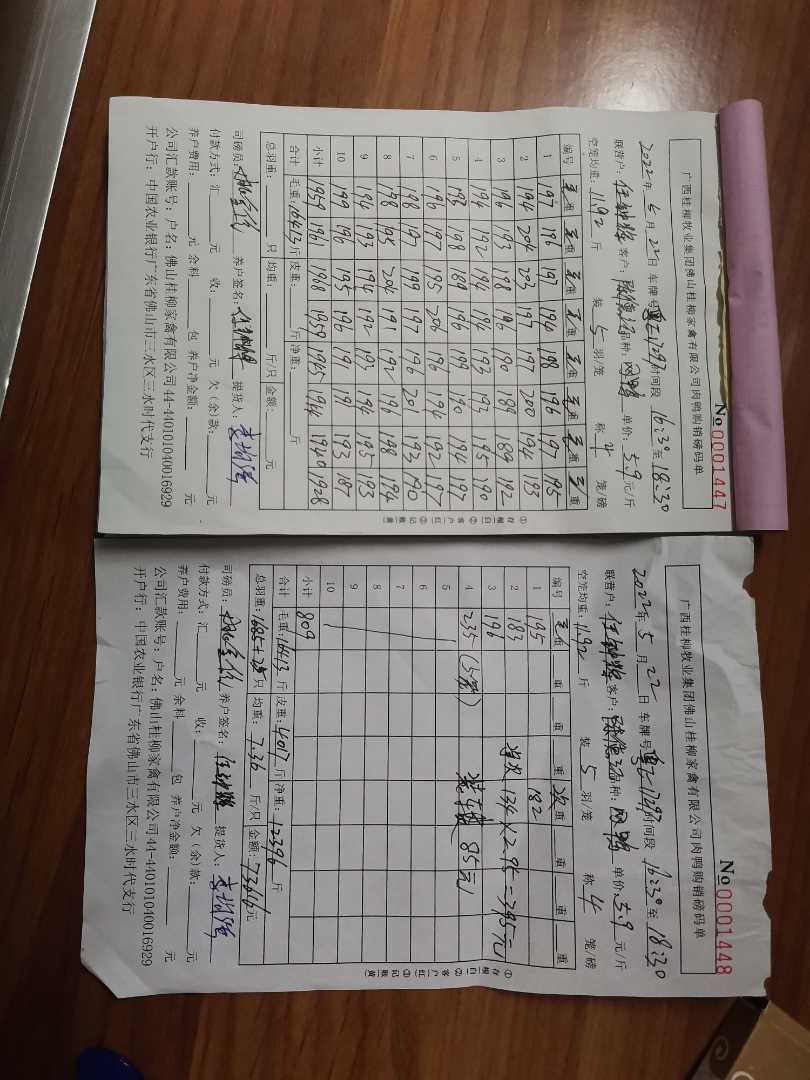 广西桂柳牧业集团佛山桂柳家禽有限公司肉鸭购销磅码单
No 0001447
2022年 5月 22日 车牌号 时间段 16:30至18:30
联营户: 客户: 品种: 单价: 5.9元/斤
空笼均重: 11.92 斤 装 5 羽/笼 称 4 笼/磅
编号 毛重 毛重 毛重 毛重 毛重 毛重 毛重 毛重
1 197 196 197 194 198 196 197 195
2 194 204 203 197 197 200 194 193
3 196 193 198 196 190 189 189 192
4 194 192 194 194 193 193 195 190
5 198 198 189 196 199 190 194 197
6 196 197 195 206 196 194 192 197
7 198 197 199 197 196 201 193 190
8 198 195 204 191 192 196 198 194
9 194 193 194 192 193 194 195 193
10 199 196 195 196 191 191 193 187
小计 1959 1961 1968 1959 1945 1944 1940 1928
合计 毛重: 16413斤 皮重: 斤 净重: 斤
总羽重: 只 均重: 斤/只 金额: 元
司磅员: 养户签名: 提货人:
付款方式: 汇 元 收: 元 欠(余)款: 元
养户费用: 元 余料 包 养户净金额: 元
公司汇款账号: 户名: 佛山桂柳家禽有限公司44-440101040016929
开户行: 中国农业银行广东省佛山市三水区三水时代支行
①存根(白) ②客户(红) ③记账(黄)
广西桂柳牧业集团佛山桂柳家禽有限公司肉鸭购销磅码单
No 0001448
2022年 5月 22日 车牌号 时间段 16:30至18:30
联营户: 客户: 品种: 单价: 5.9元/斤
空笼均重: 11.92 斤 装 5 羽/笼 称 4 笼/磅
编号 毛重 重 重 次重 重 重
1 195 182
2 183 134×2.95=395元
3 196
4 235 装车费 85元
5
6
7
8
9
10
小计 809
合计 毛重: 16413斤 皮重: 4017斤 净重: 12396斤
总羽重: 1685+ 只 均重: 7.36 斤/只 金额: 73616元
司磅员: 养户签名: 提货人:
付款方式: 汇 元 收: 元 欠(余)款: 元
养户费用: 元 余料 包 养户净金额: 元
公司汇款账号: 户名: 佛山桂柳家禽有限公司44-440101040016929
开户行: 中国农业银行广东省佛山市三水区三水时代支行
①存根(白) ②客户(红) ③记账(黄)